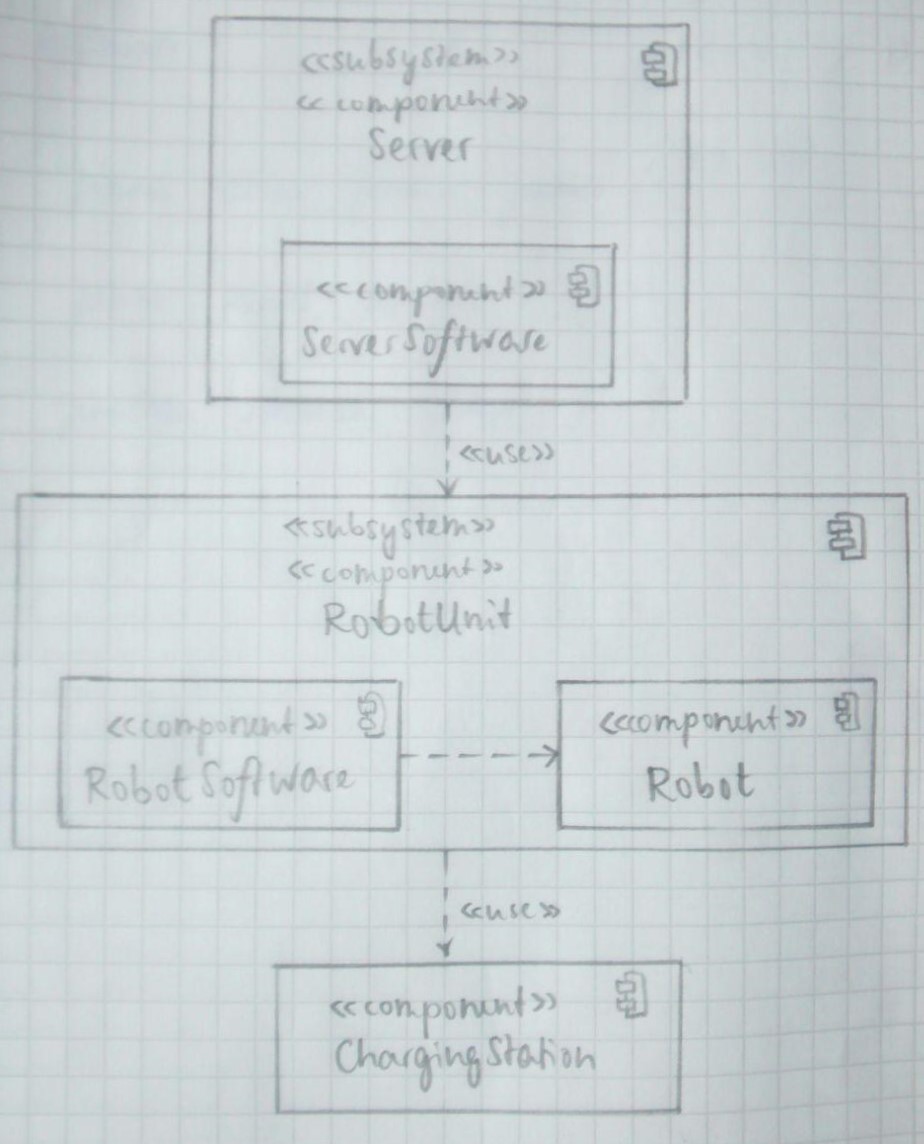 <<subsystem>>
<<component>>
Server
<<component>>
ServerSoftware
<<use>>
<<subsystem>>
<<component>>
RobotUnit
<<component>>
RobotSoftware
<<component>>
Robot
<<use>>
<<component>>
ChargingStation